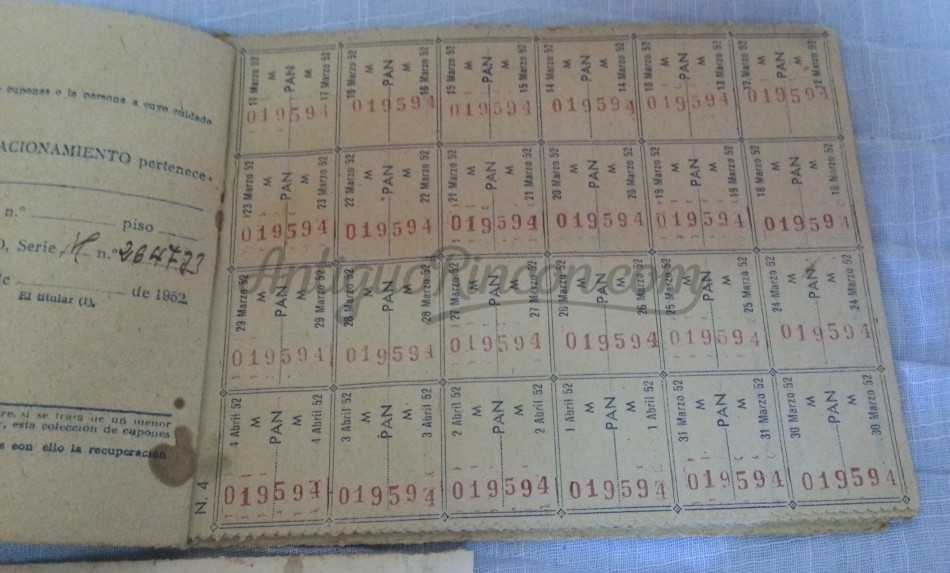 cupones o la persona a cuyo cuidado
ACIONAMIENTO pertenece.
n.º piso
Serie M n.º
de de 1952
El titular (1),
si se trata de un menor
esta colección de cupones
con ello la recuperación
N. 4
17 Marzo 52 M PAN M 17 Marzo 52
019594
16 Marzo 52 M PAN M 16 Marzo 52
019594
15 Marzo 52 M PAN M 15 Marzo 52
019594
14 Marzo 52 M PAN M 14 Marzo 52
019594
13 Marzo 52 M PAN M 13 Marzo 52
019594
12 Marzo 52 M PAN M 12 Marzo 52
019594
23 Marzo 52 M PAN M 23 Marzo 52
019594
22 Marzo 52 M PAN M 22 Marzo 52
019594
21 Marzo 52 M PAN M 21 Marzo 52
019594
20 Marzo 52 M PAN M 20 Marzo 52
019594
19 Marzo 52 M PAN M 19 Marzo 52
019594
18 Marzo 52 M PAN M 18 Marzo 52
019594
AntiguoRincon.com
29 Marzo 52 M PAN M 29 Marzo 52
019594
28 Marzo 52 M PAN M 28 Marzo 52
019594
27 Marzo 52 M PAN M 27 Marzo 52
019594
26 Marzo 52 M PAN M 26 Marzo 52
019594
25 Marzo 52 M PAN M 25 Marzo 52
019594
24 Marzo 52 M PAN M 24 Marzo 52
019594
4 Abril 52 M PAN M 4 Abril 52
019594
3 Abril 52 M PAN M 3 Abril 52
019594
2 Abril 52 M PAN M 2 Abril 52
019594
1 Abril 52 M PAN M 1 Abril 52
019594
31 Marzo 52 M PAN M 31 Marzo 52
019594
30 Marzo 52 M PAN M 30 Marzo 52
019594